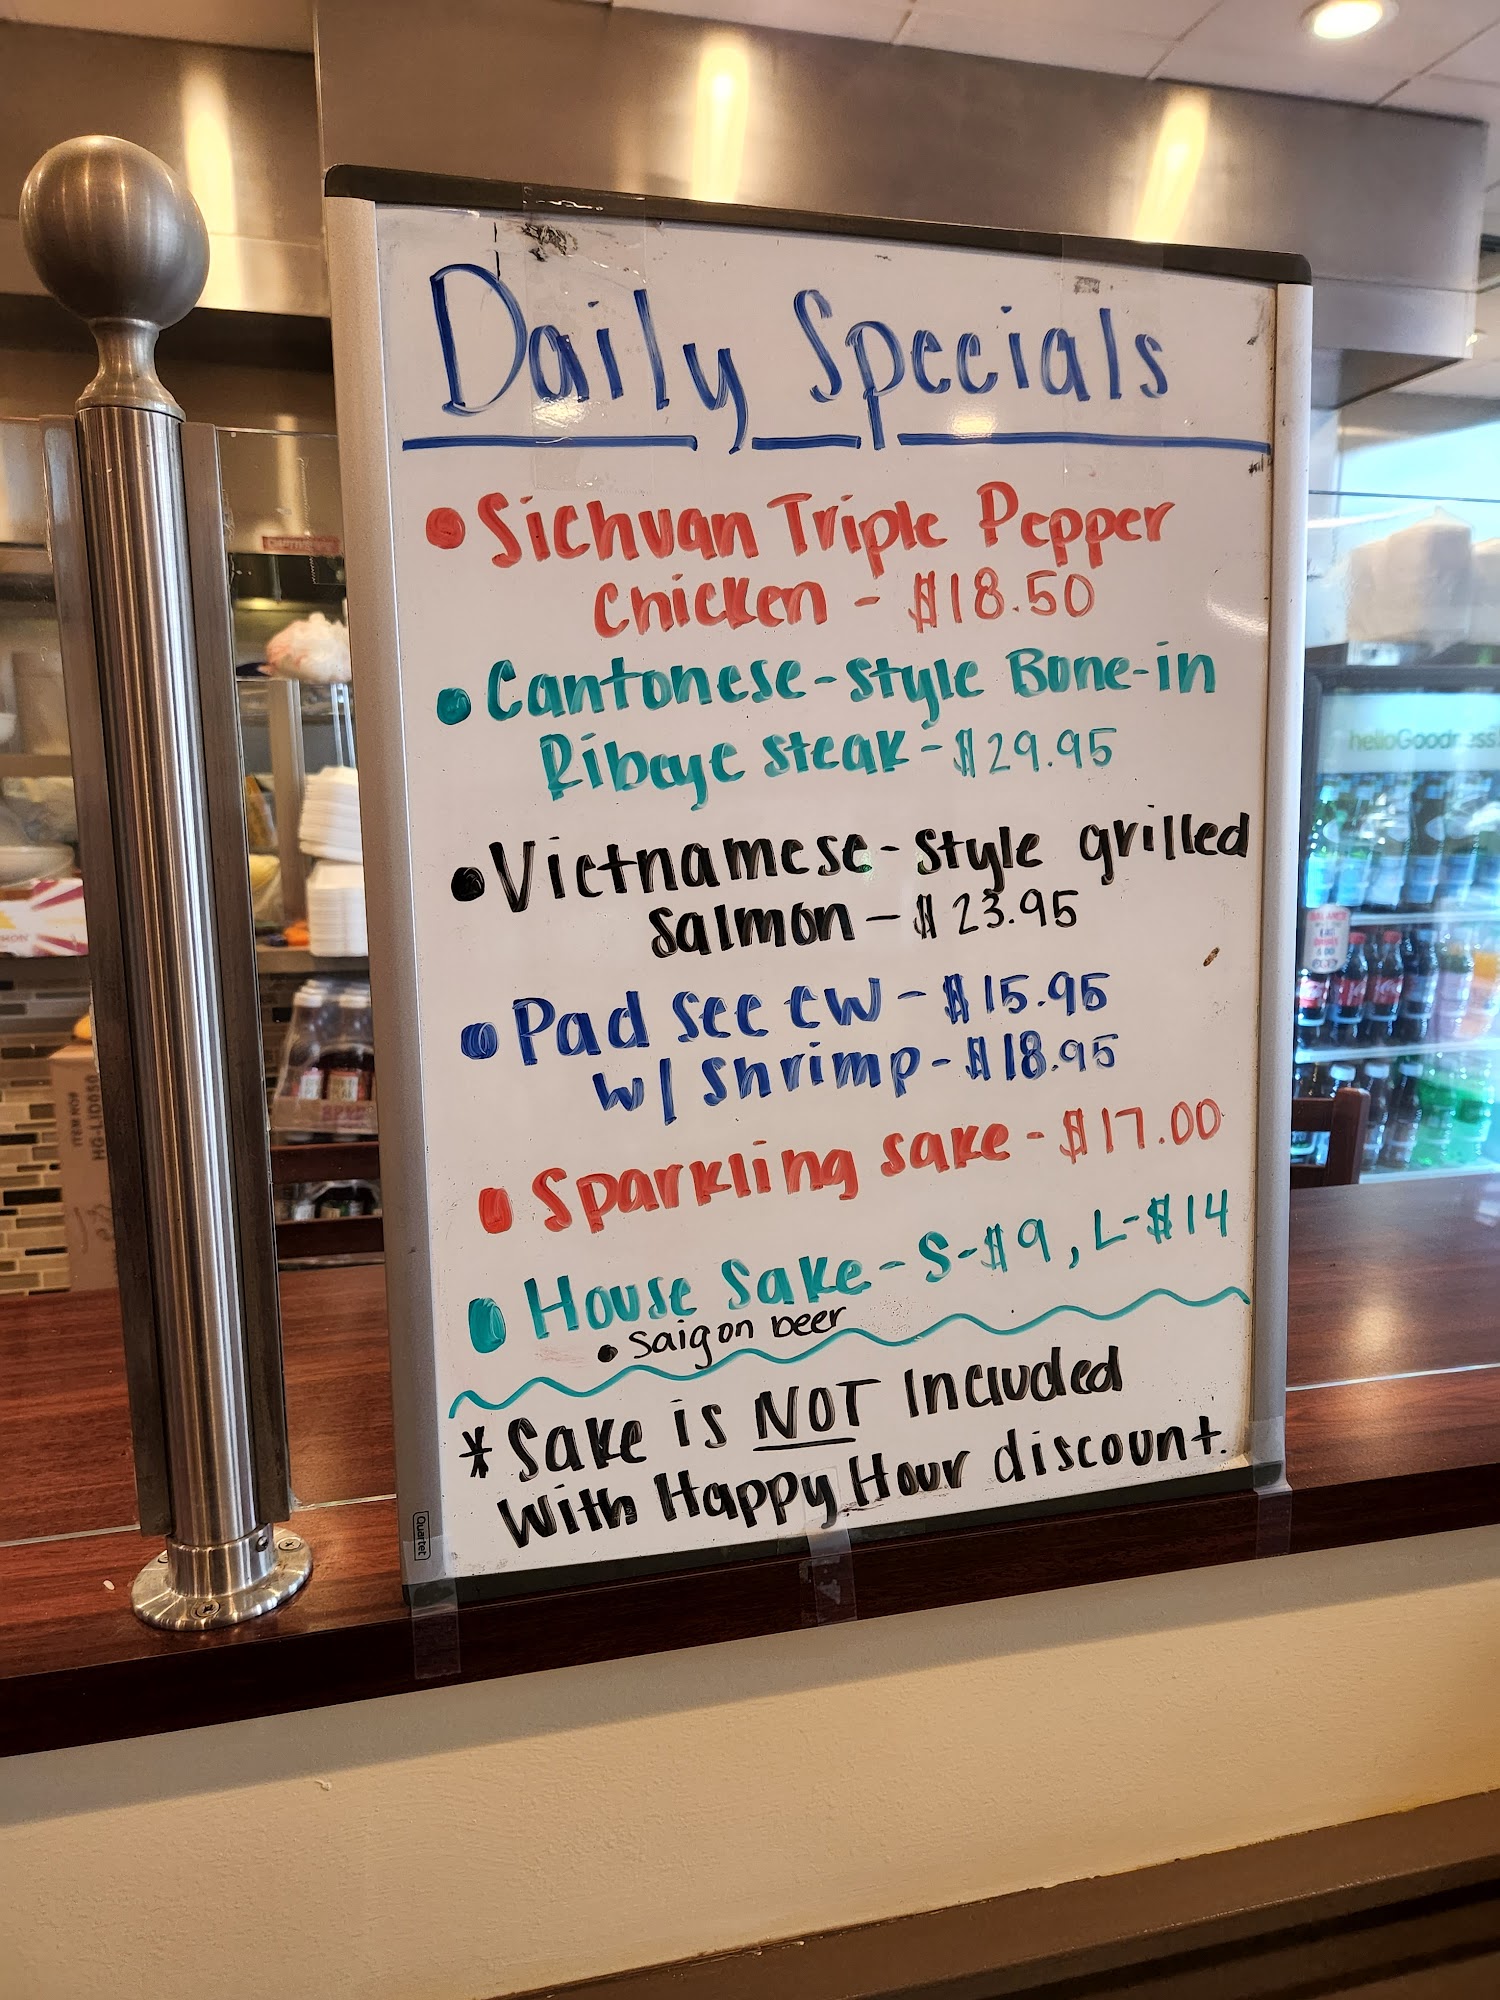 Daily Specials
• Sichuan Triple Pepper
Chicken - $18.50
• Cantonese-style Bone-in
Ribeye steak - $29.95
• Vietnamese-style grilled
salmon - $23.95
• Pad see ew - $15.95
w/ shrimp - $18.95
• Sparkling sake - $17.00
• House Sake - S-$9, L-$14
• Saigon beer
* Sake is NOT Included
with Happy Hour discount.
Quartet
ITEM NO#
HG-LID850